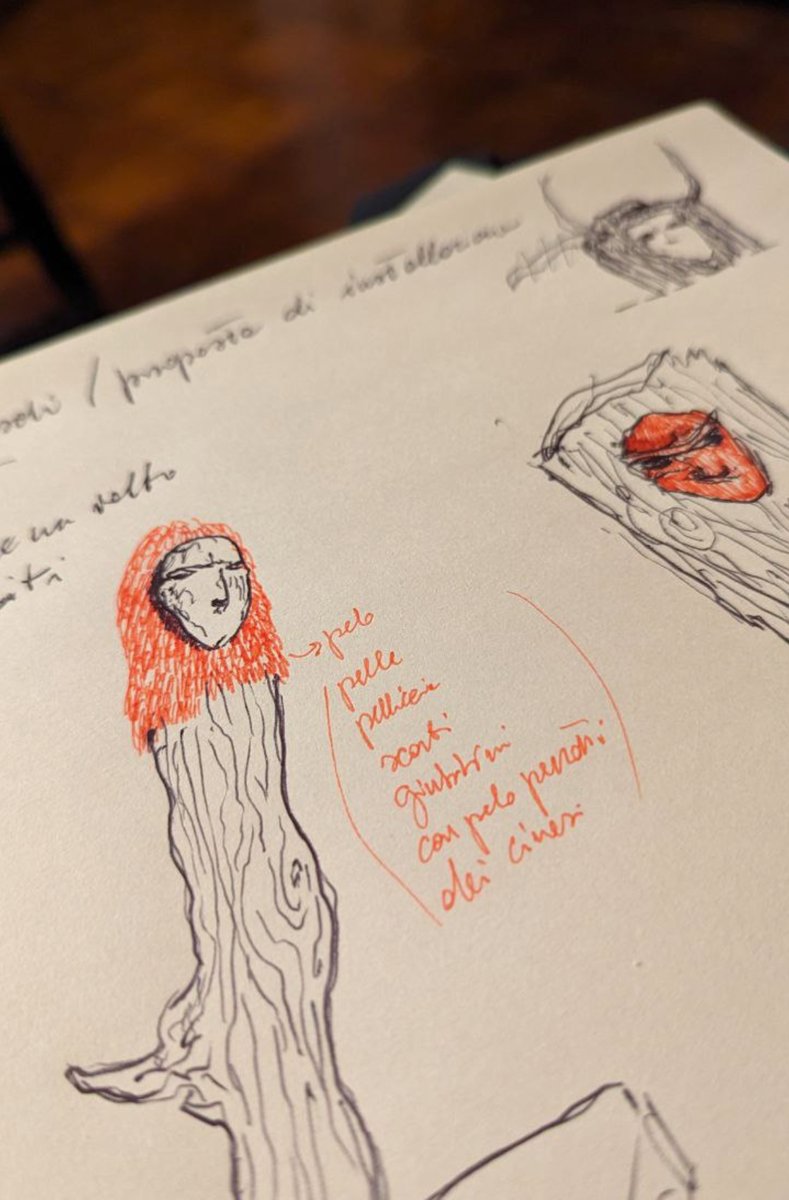 / proposta di installazione
e un volto
pelo
pelle
pellicce
scarti
giubbini
con pelo
dei cinesi